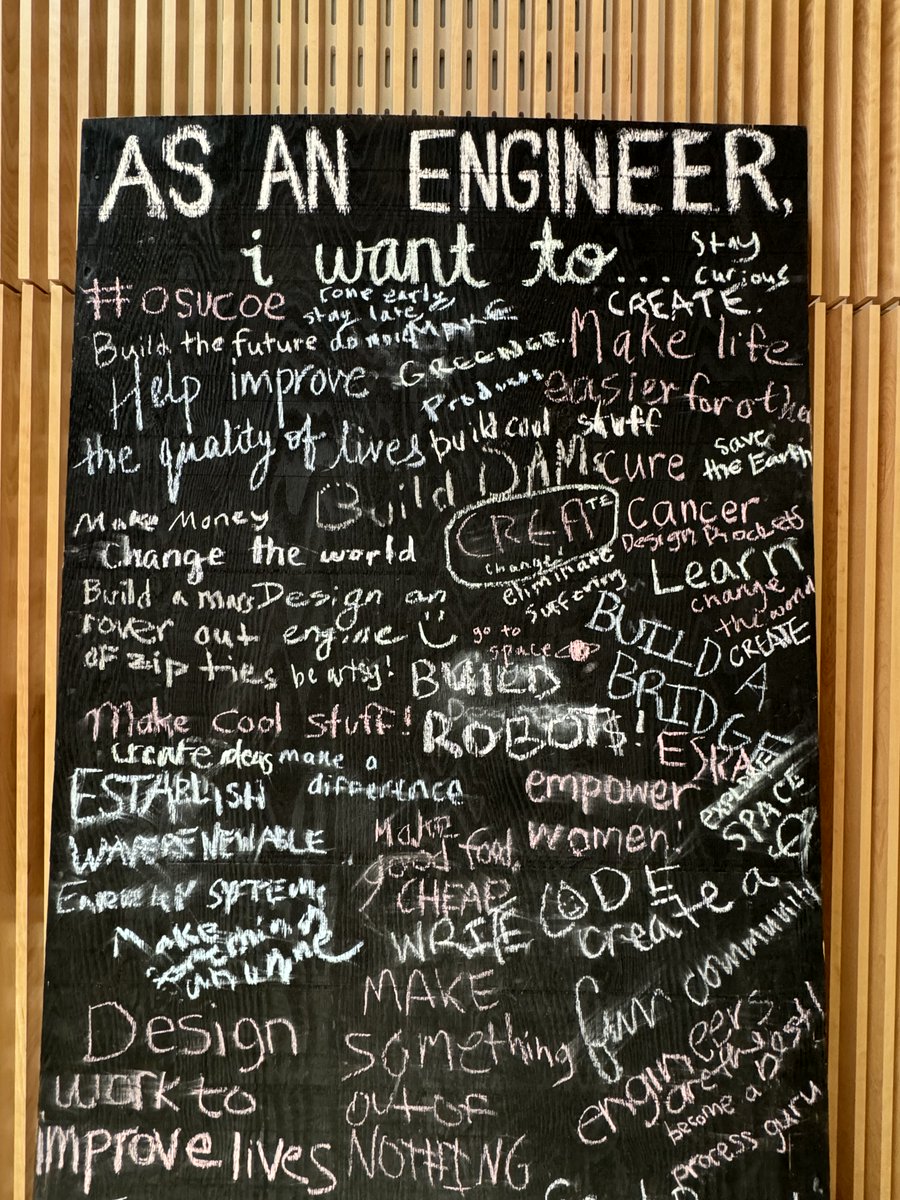 AS AN ENGINEER,
i want to...
stay
curious
#osucoe
come early
stay late
CREATE.
Build the future
MAKE
GREENER
Products
Make life
easier for othe
Help improve
the quality of lives
build cool stuff
save
the Earth
Build DAMs
cure
cancer
Make Money
CREATE
change!
Design Rockets
Change the world
eliminate
suffering
Learn
change
the world
CREATE
Build a mars
rover out
of zip ties
Design an
engine
be artsy!
go to
space
BUILD A
BRIDGE
BUILD
ROBOTS!
Make cool stuff!
create ideas
make a
difference
ESTABLISH
WAVE RENEWABLE
ENERGY SYSTEMS
empower
women!
SPACE
Make
good food,
CHEAP
WRITE CODE
create a
fun community
Make
something
MAKE
something
OUT OF
NOTHING
Design
work to
improve lives
engineers
are the best!
become a
process guru